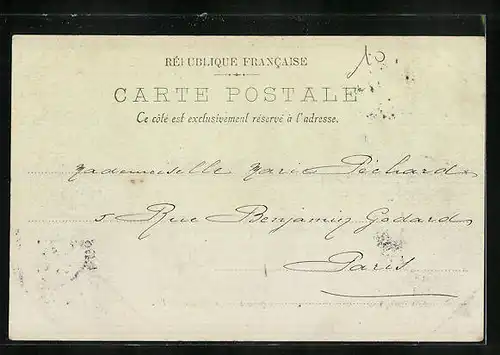 RÉPUBLIQUE FRANÇAISE
10
CARTE POSTALE
Ce côté est exclusivement réservé à l'adresse.
Mademoiselle Marie Péchard
5 Rue Benjamin Godard
Paris